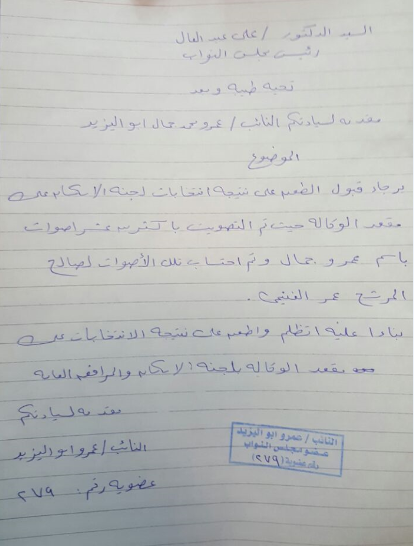 السيد الدكتور / على عبد العال
رئيس مجلس النواب
تحية طيبة وبعد
مقدمه لسيادتكم النائب / عمرو محمد جمال ابو اليزيد
الموضوع
برجاء قبول الطعن على نتيجة انتخابات لجنة الاسكان على
مقعد الوكالة حيث تم التصويت باكثر من عشر اصوات
باسم عمرو جمال وتم احتساب تلك الأصوات لصالح
المرشح عمر الغنيمى.
بناءا عليه اتظلم واطعن على نتيجة الانتخابات على
مقعد الوكالة بلجنة الاسكان والمرافق العامه
مقدمه لسيادتكم
النائب / عمرو ابو اليزيد
عضوية رقم: ٢٧٩
النائب / عمرو ابو اليزيد
عضو مجلس النواب
رقم عضوية (٢٧٩)